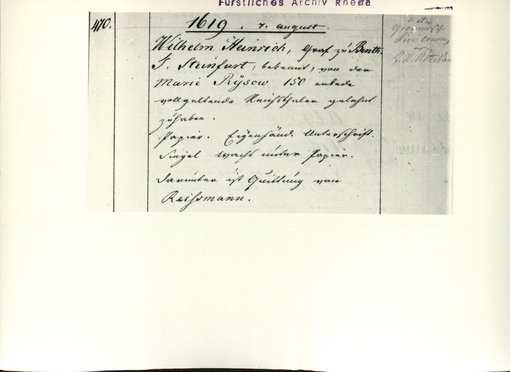 Fürstliches Archiv Rheda
470.
1619. 7. august
Wilhelm Heinrich, Graf zu Benth.
J. Steinfurt, bekennt, von der
Marie Rÿsow 150
vollgeltende Reichsthaler gelehnt
zuhaben.
Papier. Eigenhänd. Unterschrift.
Siegel wachs unter Papier.
darunter ist Quittung von
Reissmann.